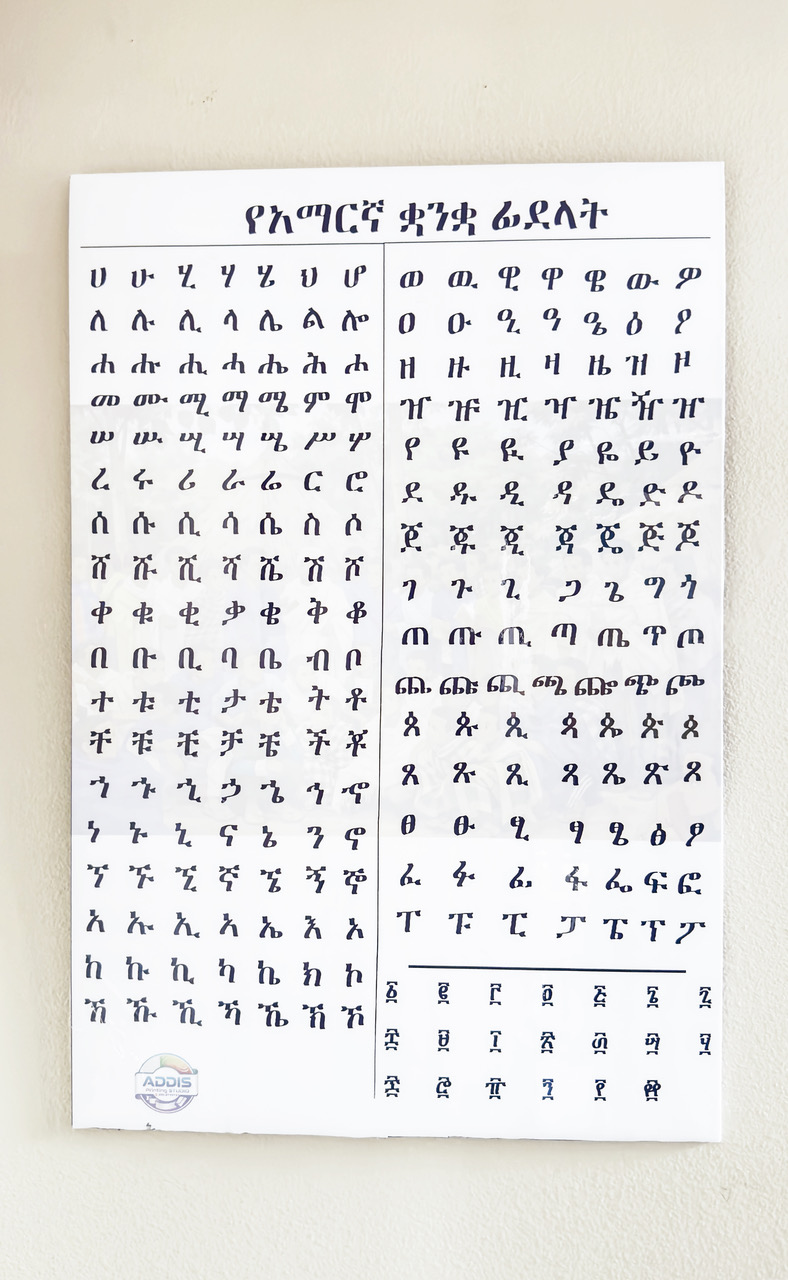 የአማርኛ ቋንቋ ፊደላት
ሀ ሁ ሂ ሃ ሄ ህ ሆ
ለ ሉ ሊ ላ ሌ ል ሎ
ሐ ሑ ሒ ሓ ሔ ሕ ሖ
መ ሙ ሚ ማ ሜ ም ሞ
ሠ ሡ ሢ ሣ ሤ ሥ ሦ
ረ ሩ ሪ ራ ሬ ር ሮ
ሰ ሱ ሲ ሳ ሴ ስ ሶ
ሸ ሹ ሺ ሻ ሼ ሽ ሾ
ቀ ቁ ቂ ቃ ቄ ቅ ቆ
በ ቡ ቢ ባ ቤ ብ ቦ
ተ ቱ ቲ ታ ቴ ት ቶ
ቸ ቹ ቺ ቻ ቼ ች ቾ
ኀ ኁ ኂ ኃ ኄ ኅ ኆ
ነ ኑ ኒ ና ኔ ን ኖ
ኘ ኙ ኚ ኛ ኜ ኝ ኞ
አ ኡ ኢ ኣ ኤ እ ኦ
ከ ኩ ኪ ካ ኬ ክ ኮ
ኸ ኹ ኺ ኻ ኼ ኽ ኾ
ADDIS
ወ ዉ ዊ ዋ ዌ ው ዎ
ዐ ዑ ዒ ዓ ዔ ዕ ዖ
ዘ ዙ ዚ ዛ ዜ ዝ ዞ
ዠ ዡ ዢ ዣ ዤ ዥ ዠ
የ ዩ ዪ ያ ዬ ይ ዮ
ደ ዱ ዲ ዳ ዴ ድ ዶ
ጀ ጁ ጂ ጃ ጄ ጅ ጆ
ገ ጉ ጊ ጋ ጌ ግ ጎ
ጠ ጡ ጢ ጣ ጤ ጥ ጦ
ጨ ጩ ጪ ጫ ጬ ጭ ጮ
ጰ ጱ ጲ ጳ ጴ ጵ ጶ
ጸ ጹ ጺ ጻ ጼ ጽ ጾ
ፀ ፁ ፂ ፃ ፄ ፅ ፆ
ፈ ፉ ፊ ፋ ፌ ፍ ፎ
ፐ ፑ ፒ ፓ ፔ ፕ ፖ
፩ ፪ ፫ ፬ ፭ ፮ ፯
፰ ፱ ፲ ፳ ፴ ፵ ፶
፷ ፸ ፹ ፺ ፻ ፼